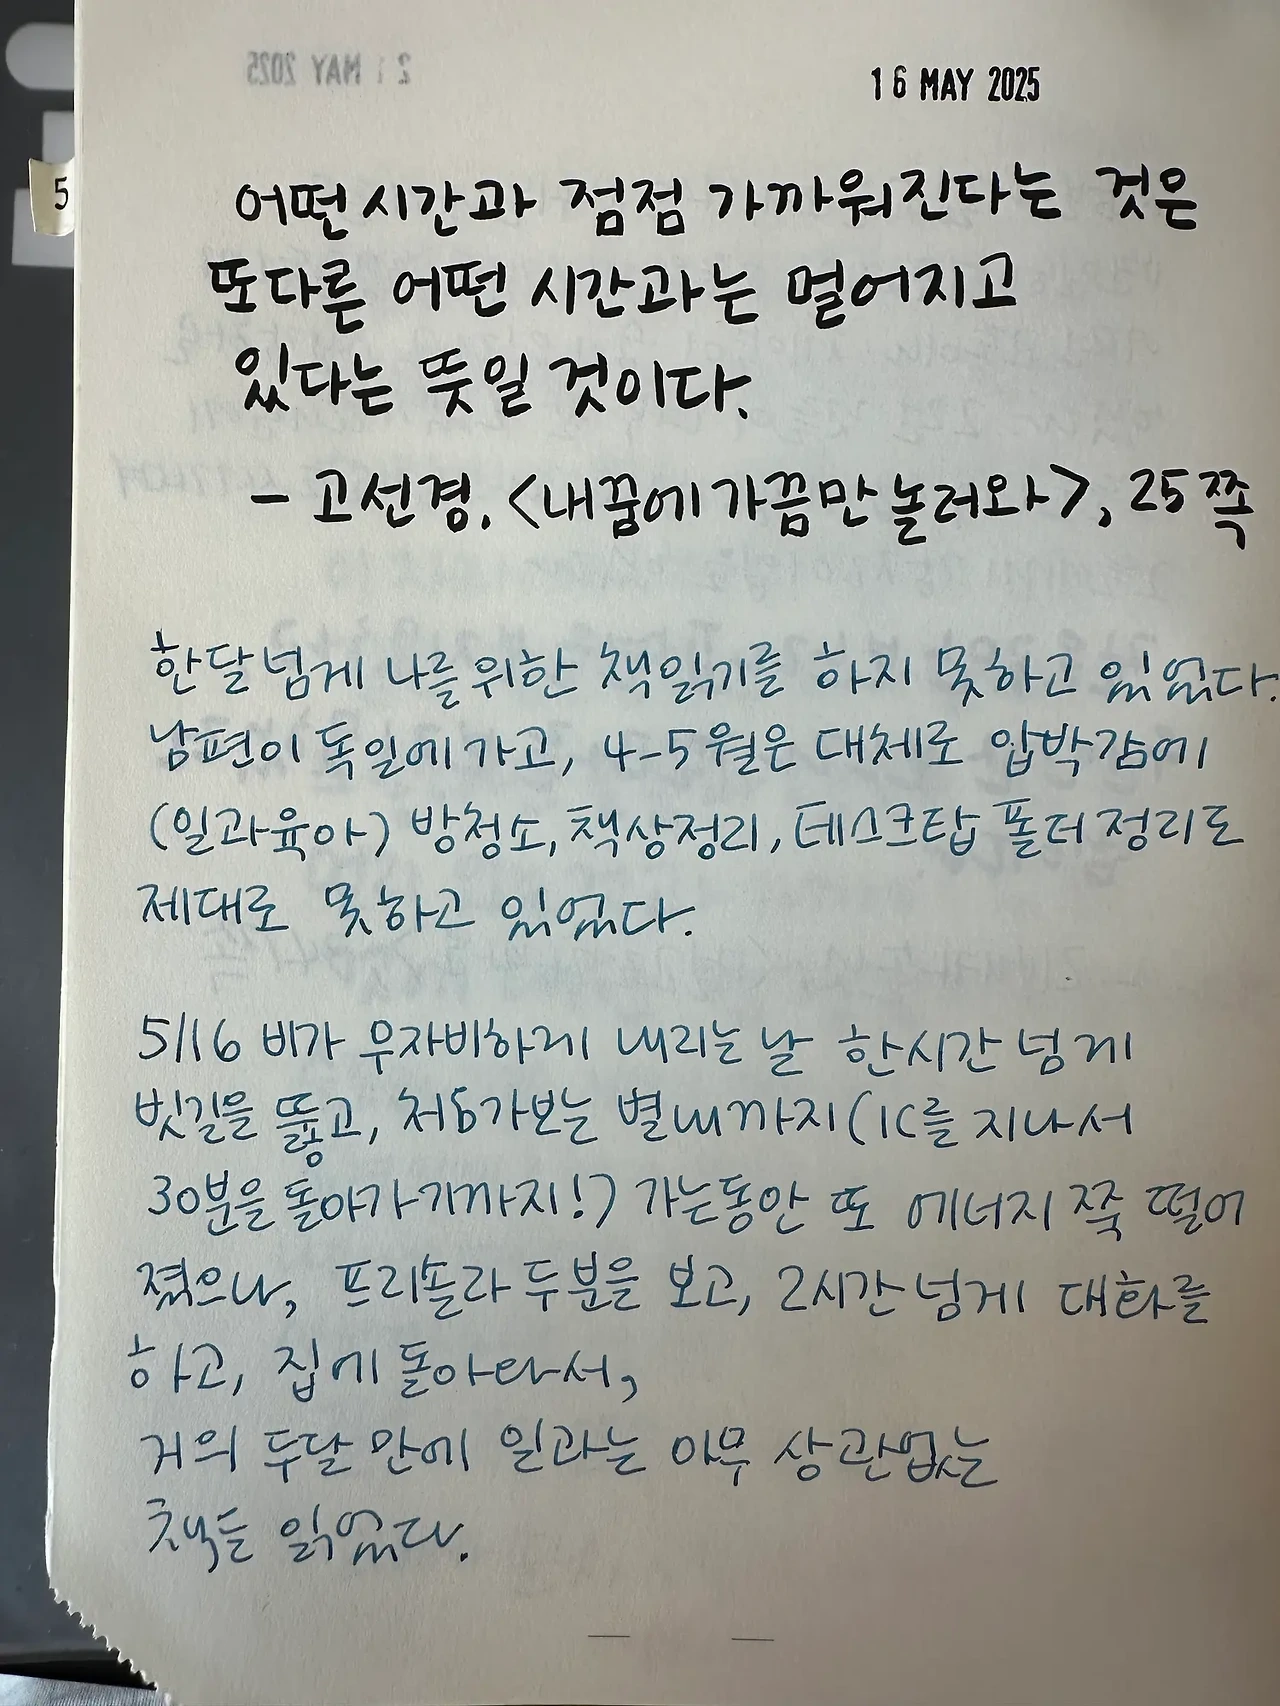 16 MAY 2025
5
어떤 시간과 점점 가까워진다는 것은
또다른 어떤 시간과는 멀어지고
있다는 뜻일 것이다.
- 고선경, <내꿈에 가끔만 놀러와>, 25쪽
한달넘게 나를위한 책읽기를 하지 못하고 있었다.
남편이 독일에 가고, 4-5월은 대체로 압박감에
(일과육아) 방청소, 책상정리, 데스크탑 폴더정리도
제대로 못하고 있었다.
5/16 비가 무자비하게 내리는 날 한시간 넘게
빗길을 뚫고, 처음가보는 별내까지 (IC를 지나서
30분을 돌아가기까지!) 가는동안 또 에너지 쭉 떨어
졌으나, 프리솔라 두분을 보고, 2시간 넘게 대화를
하고, 집에 돌아와서,
거의 두달 만에 일과는 아무 상관없는
책들 읽었다.